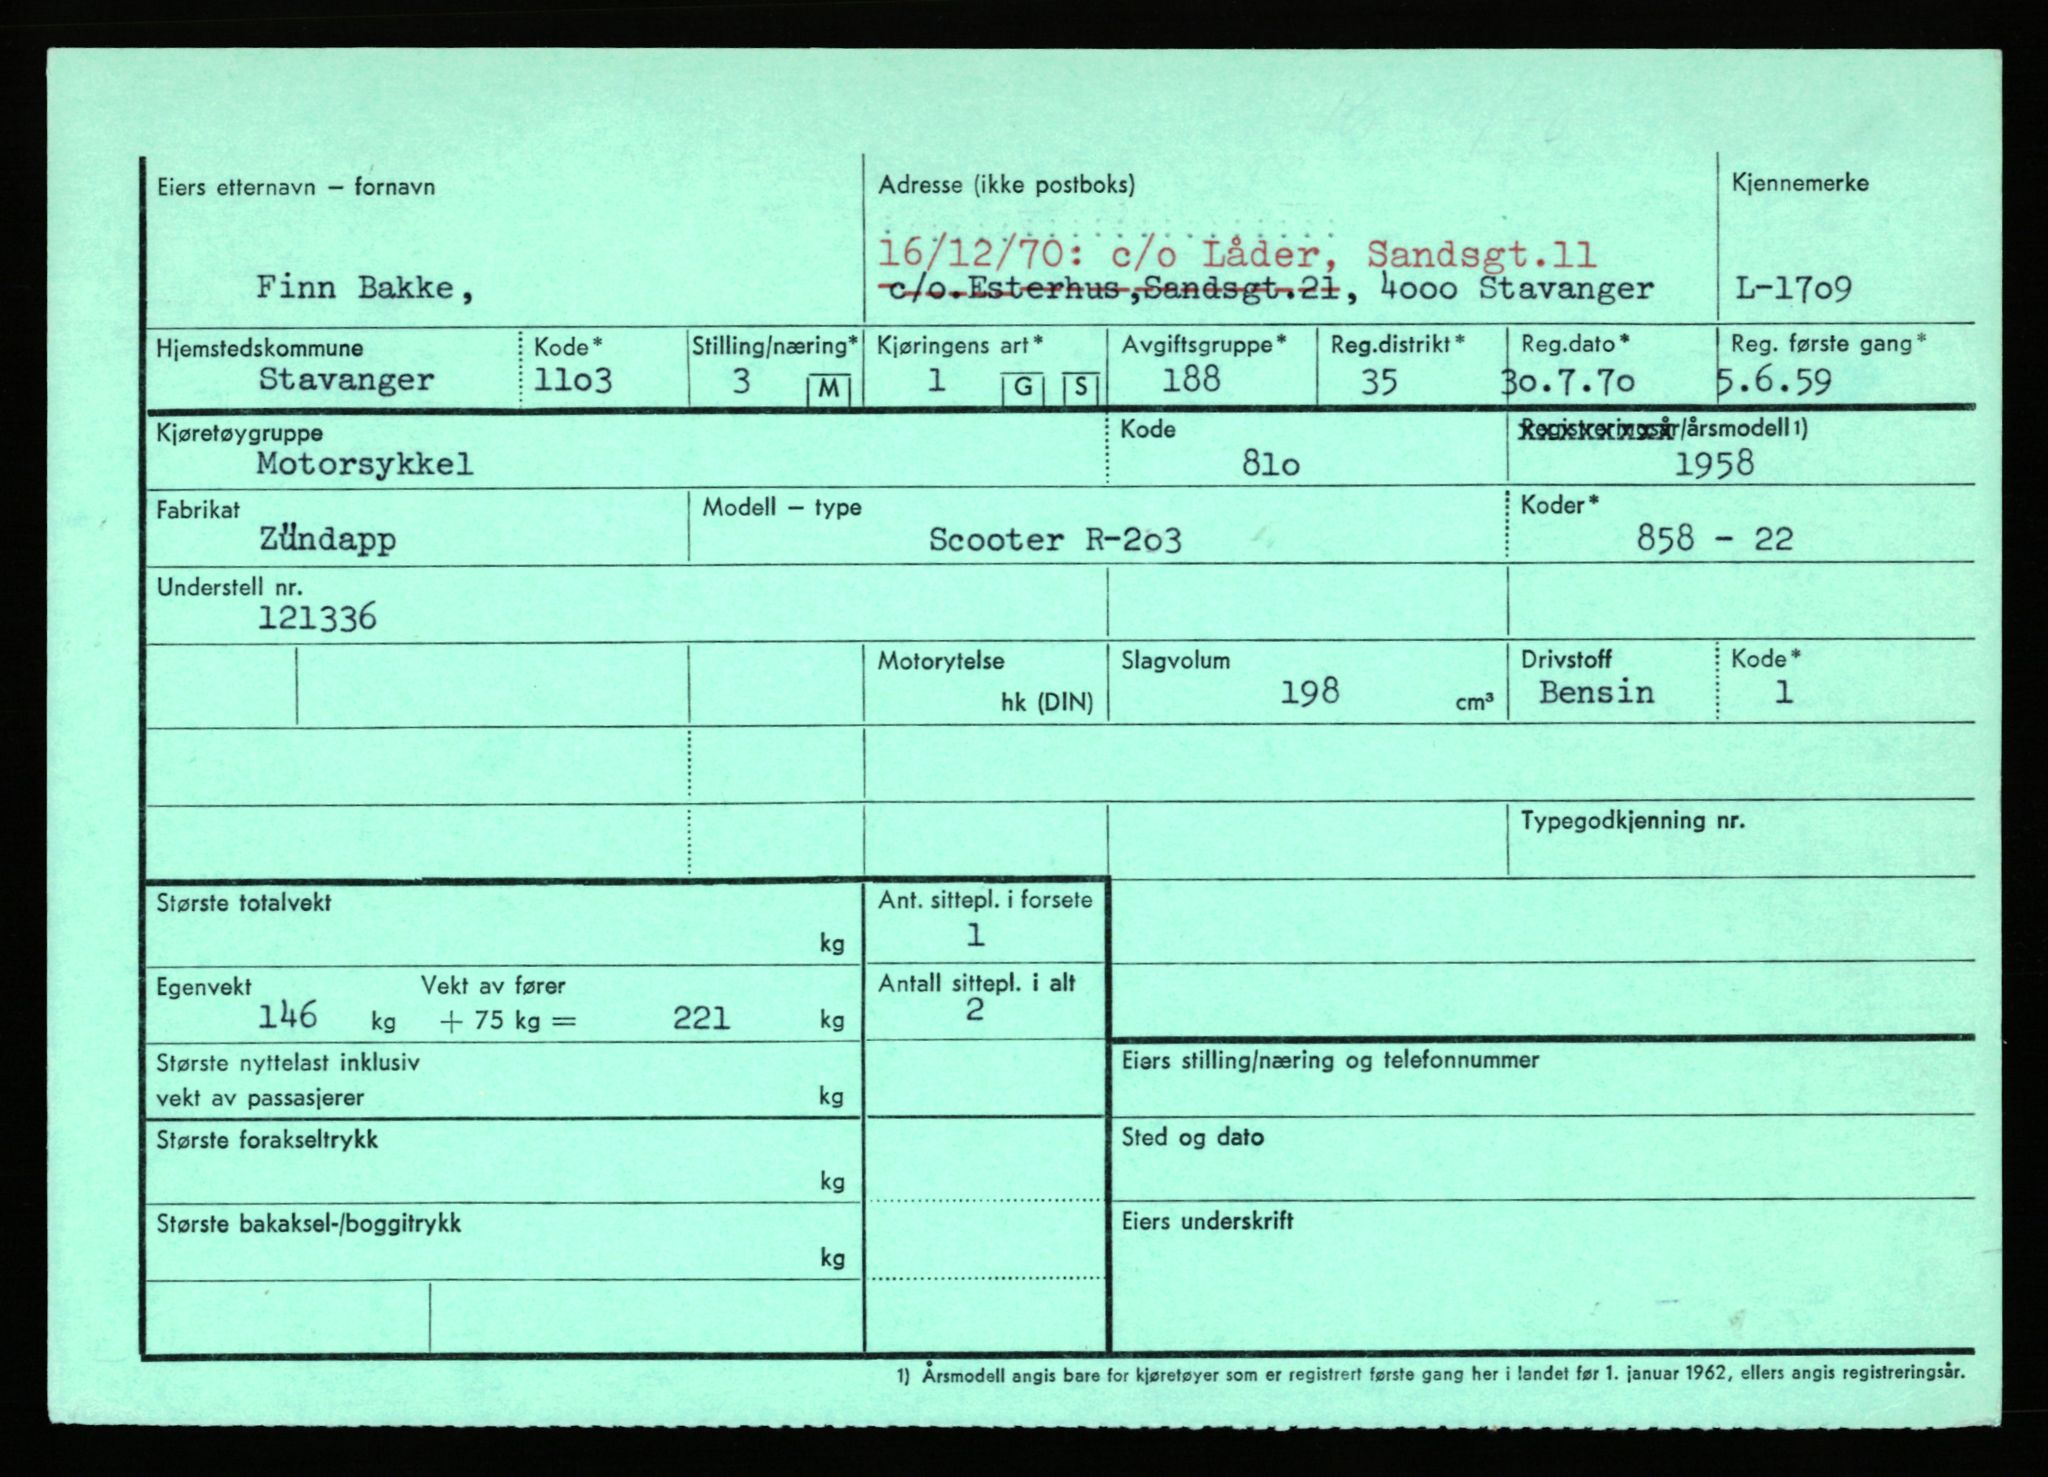 Eiers etternavn – fornavn
Adresse (ikke postboks)
Kjennemerke
16/12/70: c/o Låder, Sandsgt.11
Finn Bakke,
c/o.Esterhus,Sandsgt.21, 4000 Stavanger
L-1709
Hjemstedskommune
Kode*
Stilling/næring*
Kjøringens art*
Avgiftsgruppe*
Reg.distrikt*
Reg.dato*
Reg. første gang*
Stavanger
1103
3
M
1
G
S
188
35
30.7.70
5.6.59
Kjøretøygruppe
Kode
Registreringsår/årsmodell 1)
Motorsykkel
810
1958
Fabrikat
Modell – type
Koder*
Zündapp
Scooter R-203
858 - 22
Understell nr.
121336
Motorytelse
Slagvolum
Drivstoff
Kode*
hk (DIN)
198
cm³
Bensin
1
Typegodkjenning nr.
Største totalvekt
Ant. sittepl. i forsete
kg
1
Egenvekt
Vekt av fører
Antall sittepl. i alt
146 kg
+ 75 kg =
221 kg
2
Største nyttelast inklusiv
vekt av passasjerer
kg
Eiers stilling/næring og telefonnummer
Største forakseltrykk
kg
Sted og dato
Største bakaksel-/boggitrykk
kg
Eiers underskrift
1) Årsmodell angis bare for kjøretøyer som er registrert første gang her i landet før 1. januar 1962, ellers angis registreringsår.